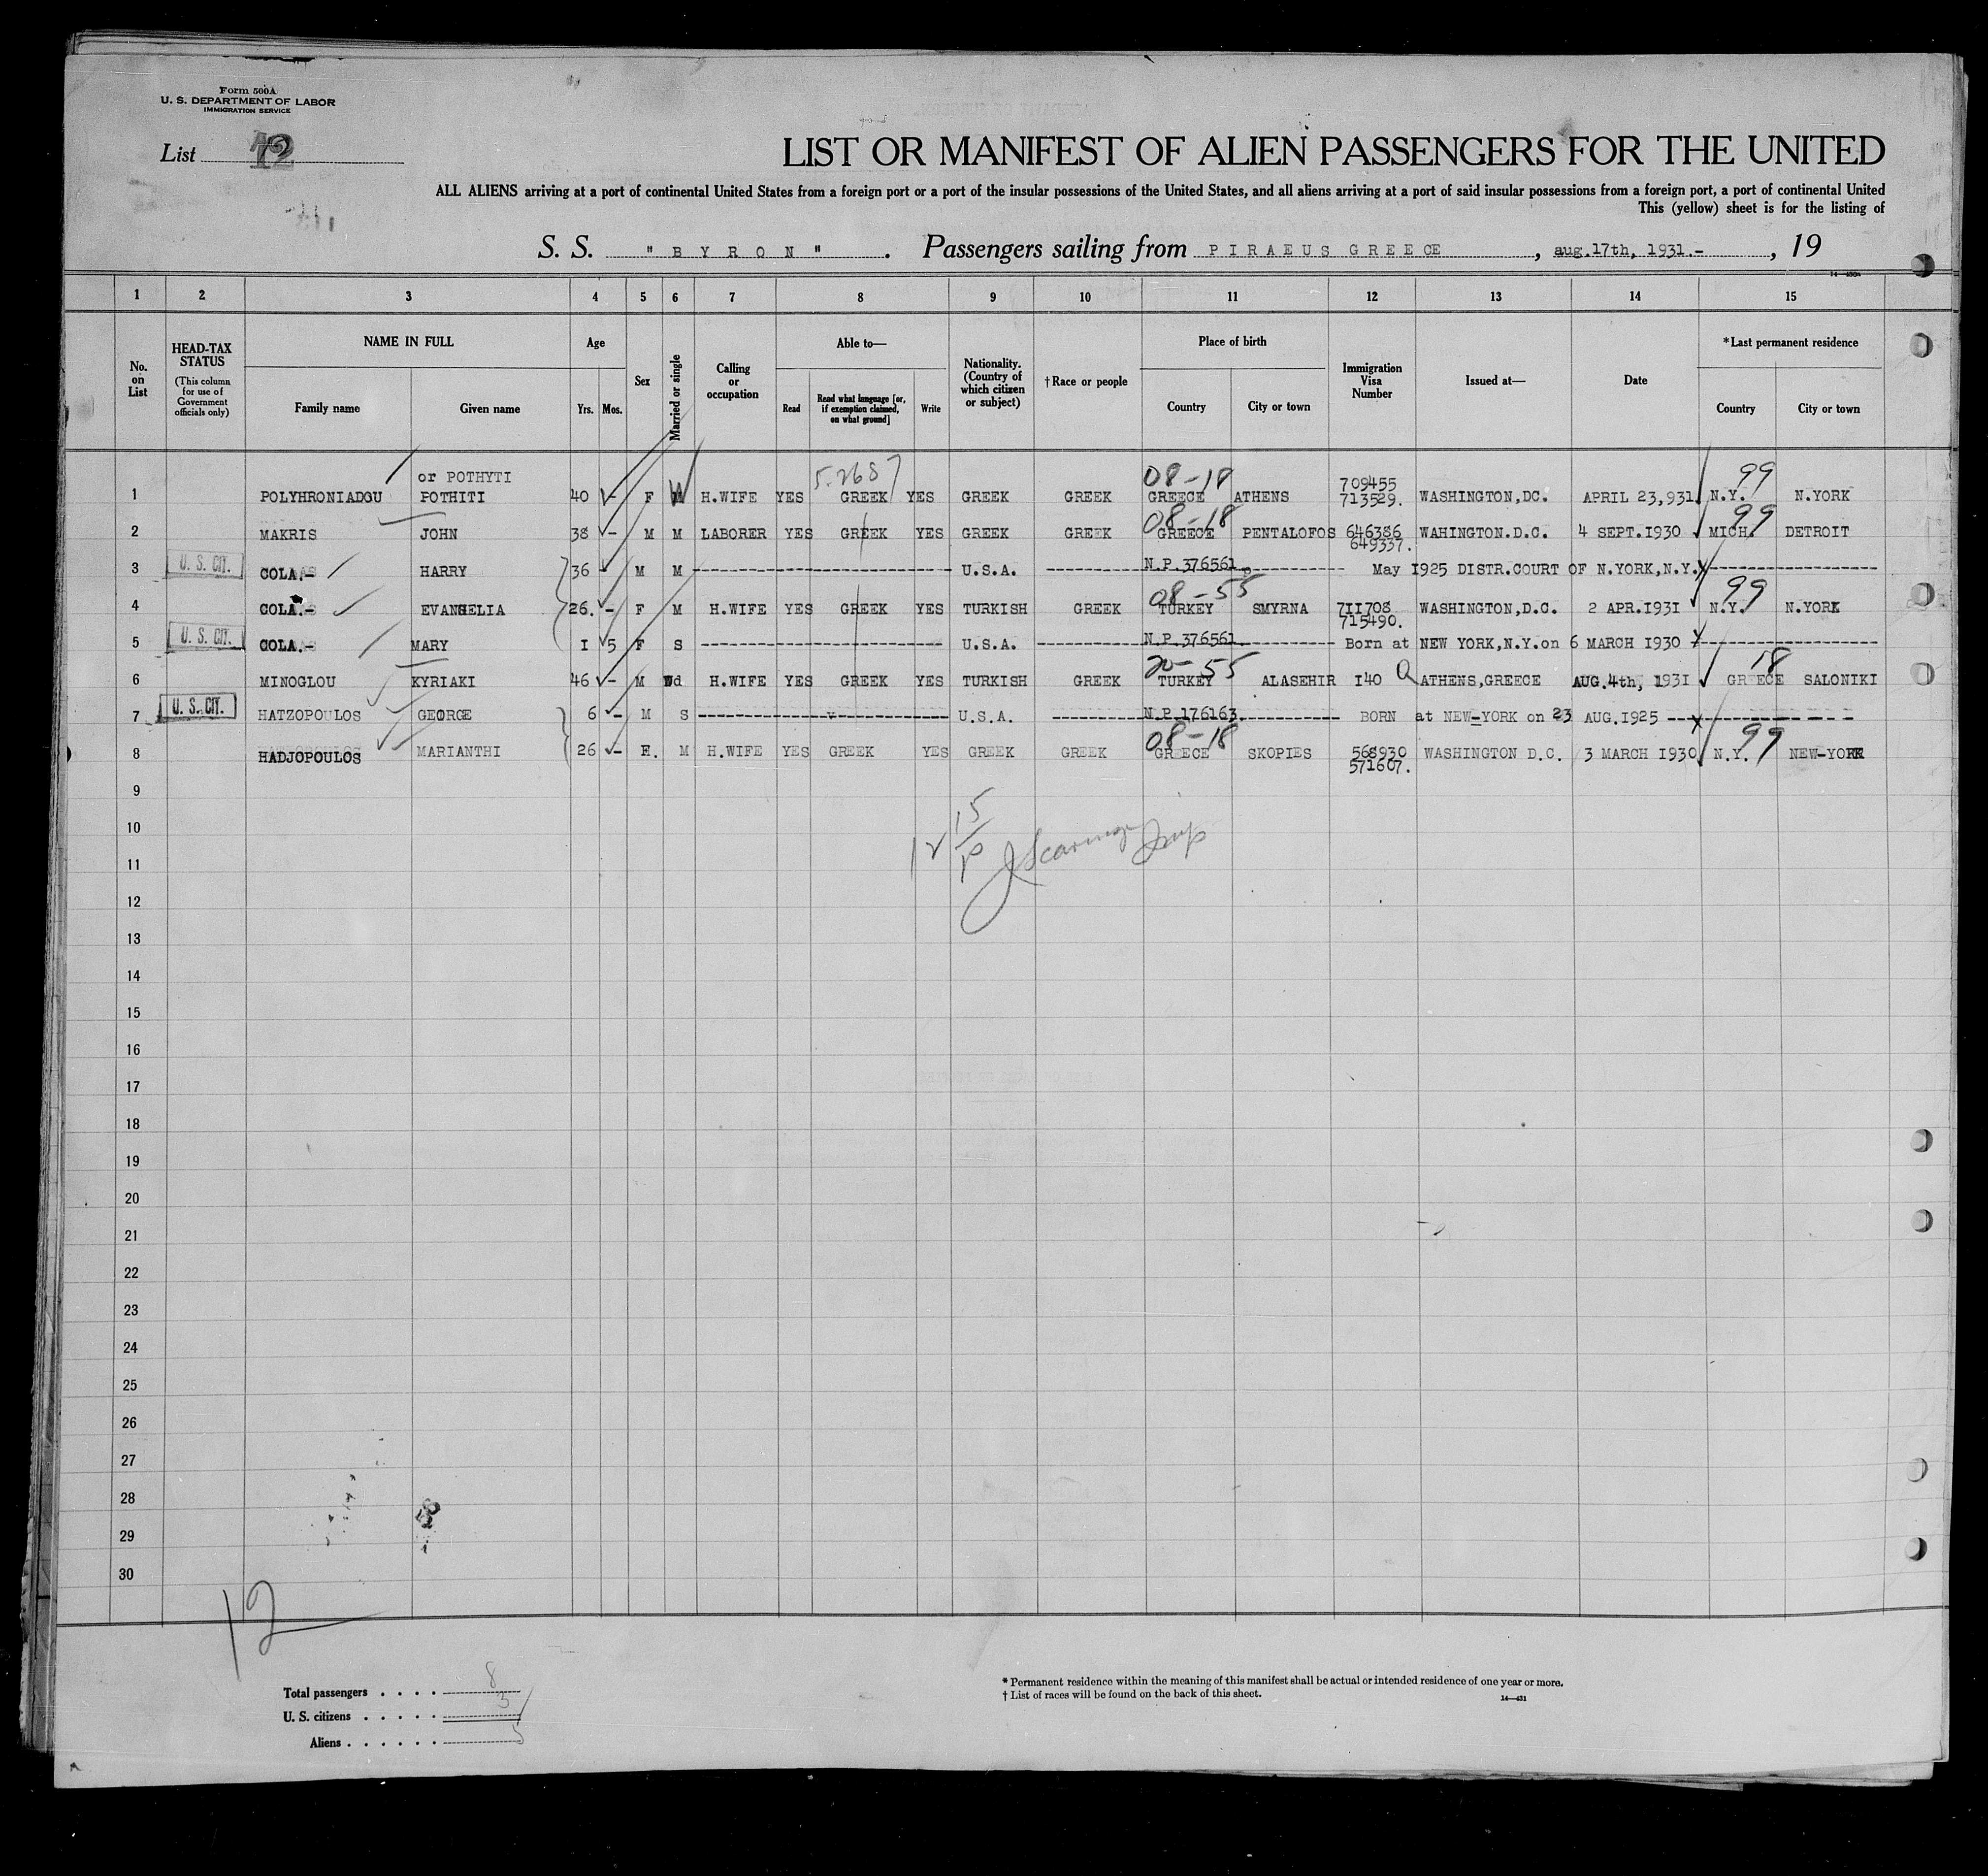 Form 500A
U. S. DEPARTMENT OF LABOR
IMMIGRATION SERVICE
List 12
LIST OR MANIFEST OF ALIEN PASSENGERS FOR THE UNITED
ALL ALIENS arriving at a port of continental United States from a foreign port or a port of the insular possessions of the United States, and all aliens arriving at a port of said insular possessions from a foreign port, a port of continental United
This (yellow) sheet is for the listing of
S. S. " B Y R O N " . Passengers sailing from P I R A E U S G R E E C E , aug.17th, 1931.- , 19
1 2 3 4 5 6 7 8 9 10 11 12 13 14 15
No. on List
HEAD-TAX STATUS (This column for use of Government officials only)
NAME IN FULL
Family name Given name
Age
Yrs. Mos.
Sex
Married or single
Calling or occupation
Able to—
Read Read what language [or, if exemption claimed, on what ground] Write
Nationality. (Country of which citizen or subject)
† Race or people
Place of birth
Country City or town
Immigration Visa Number
Issued at—
Date
* Last permanent residence
Country City or town
or POTHYTI 5-2687 08-18 709455 99
1 POLYHRONIADOU POTHITI 40 - F W H.WIFE YES GREEK YES GREEK GREEK GREECE ATHENS 713529. WASHINGTON,DC. APRIL 23,931 N.Y. N.YORK
08-18 99
2 MAKRIS JOHN 38 - M M LABORER YES GREEK YES GREEK GREEK GREECE PENTALOFOS 646386 WAHINGTON.D.C. 4 SEPT.1930 MICH. DETROIT
649337.
3 U. S. CIT. COLA.- HARRY 36 M M U.S.A. N.P.376561 May 1925 DISTR.COURT OF N.YORK,N.Y.
08-55 99
4 COLA.- EVANGELIA 26. - F M H.WIFE YES GREEK YES TURKISH GREEK TURKEY SMYRNA 711708 WASHINGTON,D.C. 2 APR.1931 N.Y. N.YORK
715490.
5 U. S. CIT. COLA.- MARY I 5 F S U.S.A. N.P.376561 Born at NEW YORK,N.Y.on 6 MARCH 1930
20-55 18
6 MINOGLOU KYRIAKI 46 - M Wd H.WIFE YES GREEK YES TURKISH GREEK TURKEY ALASEHIR I40 Q ATHENS,GREECE AUG.4th, 1931 GREECE SALONIKI
7 U. S. CIT. HATZOPOULOS GEORGE 6 - M S U.S.A. N.P.176163 BORN at NEW-YORK on 23 AUG.1925
08-18 99
8 HADJOPOULOS MARIANTHI 26 - F. M H.WIFE YES GREEK YES GREEK GREEK GREECE SKOPIES 568930 WASHINGTON D.C. 3 MARCH 1930 N.Y. NEW-YORK
571607.
9
10
11
12
13
14
15
16
17
18
19
20
21
22
23
24
25
26
27
28
29
30
12
Total passengers . . . . 8
U. S. citizens . . . . . 3
Aliens . . . . . . 5
* Permanent residence within the meaning of this manifest shall be actual or intended residence of one year or more.
† List of races will be found on the back of this sheet.
14—431